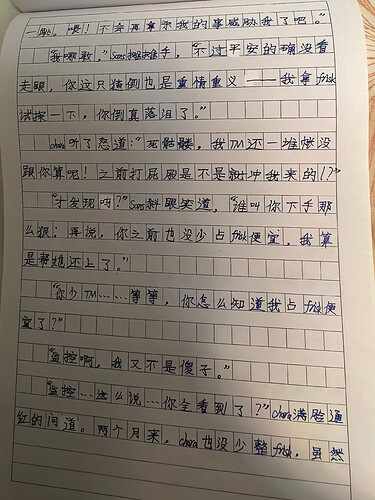 一眺，"喂！不会再拿杀我的事威胁我了吧。"
"我哪敢。"Sans摆摆手，"不过平安的确没看
走眼，你这只烧倒也是重情重义——我拿frisk
试探一下，你倒真落泪了。"
chara听了怒道："死骷髅，我TM还一堆帐没
跟你算呢！之前打屁股是不是就冲我来的！？"
"才发现吗？"Sans斜眼笑道，"谁叫你下手那
么狠；再说，你之前也没少占frisk便宜，我算
是帮她还上了。"
"你少TM……等等，你怎么知道我占frisk便
宜了？"
"监控啊，我又不是傻子。"
"监控…这么说…你全看到了？"chara满脸通
红的问道。两个月来，chara也没少整frisk，虽然